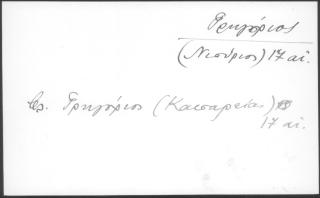 Γρηγόριος
(Νισύριος) 17 αἰ.
Γρηγόριος (Καισαρείας)
17 αἰ.